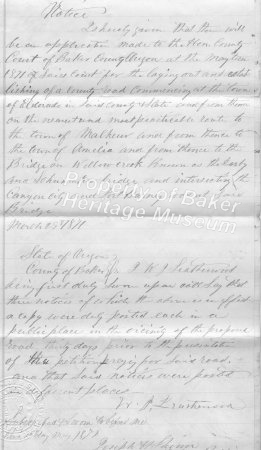 Notice
Is hereby given that there will
be an application made to the Hon County
Court of Baker County Oregon at the May term
1871 of said Court for the laying out and estab
lishing of a County road Commencing at the town
of Eldorado in said County & State and from there
on the nearest and most practicable route to
the town of Malheur and from thence to
the town of Amelia and from thence to the
Bridge on Willow creek Known as the
and bridge and intersecting the
Canyon City and
Bridge
March 25 1871
State of Oregon
County of Baker I W J Leatherwood
being first duly sworn upon oath say that
three notices of which the above is
a copy were duly posted each in a
public place in the vicinity of the proposed
road thirty days prior to the presentation
of the petition praying for said road,
and that said notices were posted
in different places
W. J. Leatherwood
Subscribed & sworn to before me
this day May 1871
Property of Baker
Heritage Museum